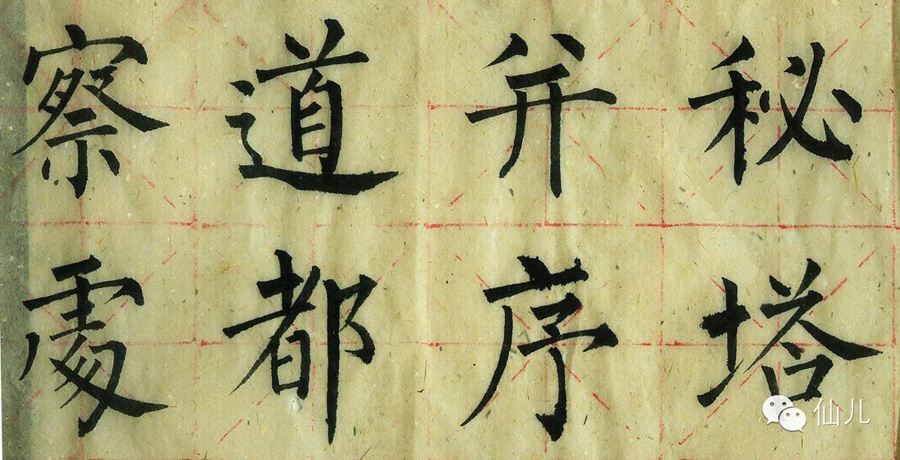 秘塔
并序
道都
察處
仙儿